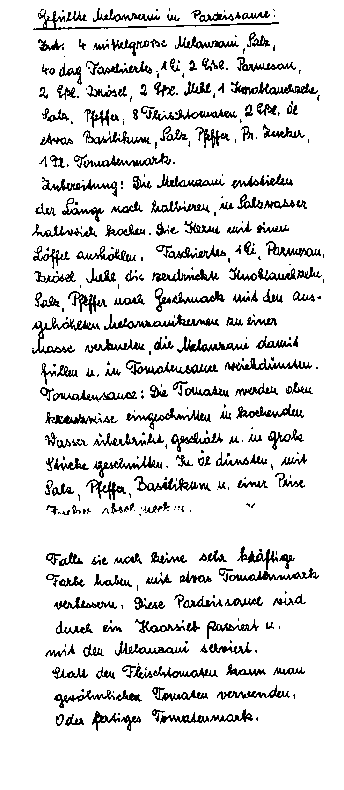 Gefüllte Melanzani in Paradeissauce:
Zut. 4 mittelgrosse Melanzani, Salz,
40 dag Faschiertes, 1 Ei, 2 Essl. Parmesan,
2 Essl. Brösel, 2 Essl. Mehl, 1 Knoblauchzehe,
Salz, Pfeffer, 8 Fleischtomaten, 2 Essl. Öl
etwas Basilikum, Salz, Pfeffer, Pr. Zucker,
1 Tl. Tomatenmark.
Zubereitung: Die Melanzani entstielen
der Länge nach halbieren, in Salzwasser
halbweich kochen. Die Kerne mit einen
Löffel aushöhlen. Faschiertes, 1 Ei, Parmesan,
Brösel, Mehl, die zerdrückte Knoblauchzehe,
Salz, Pfeffer nach Geschmack mit den aus-
gehöhlten Melanzanikernen zu einer
Masse verkneten, die Melanzani damit
füllen u. in Tomatensauce weichdünsten.
Tomatensauce: Die Tomaten werden oben
kreuzweise eingeschnitten in kochenden
Wasser überbrüht, geschält u. in grobe
Stücke geschnitten. In Öl dünsten, mit
Salz, Pfeffer, Basilikum u. einer Prise
Zucker abschmecken.
Falls sie noch keine sehr kräftige
Farbe haben, mit etwas Tomatenmark
verbessern. Diese Paradeissauce wird
durch ein Haarsieb passiert u.
mit den Melanzani serviert.
Statt den Fleischtomaten kann man
gewöhnlichen Tomaten verwenden.
Oder fertiges Tomatenmark.